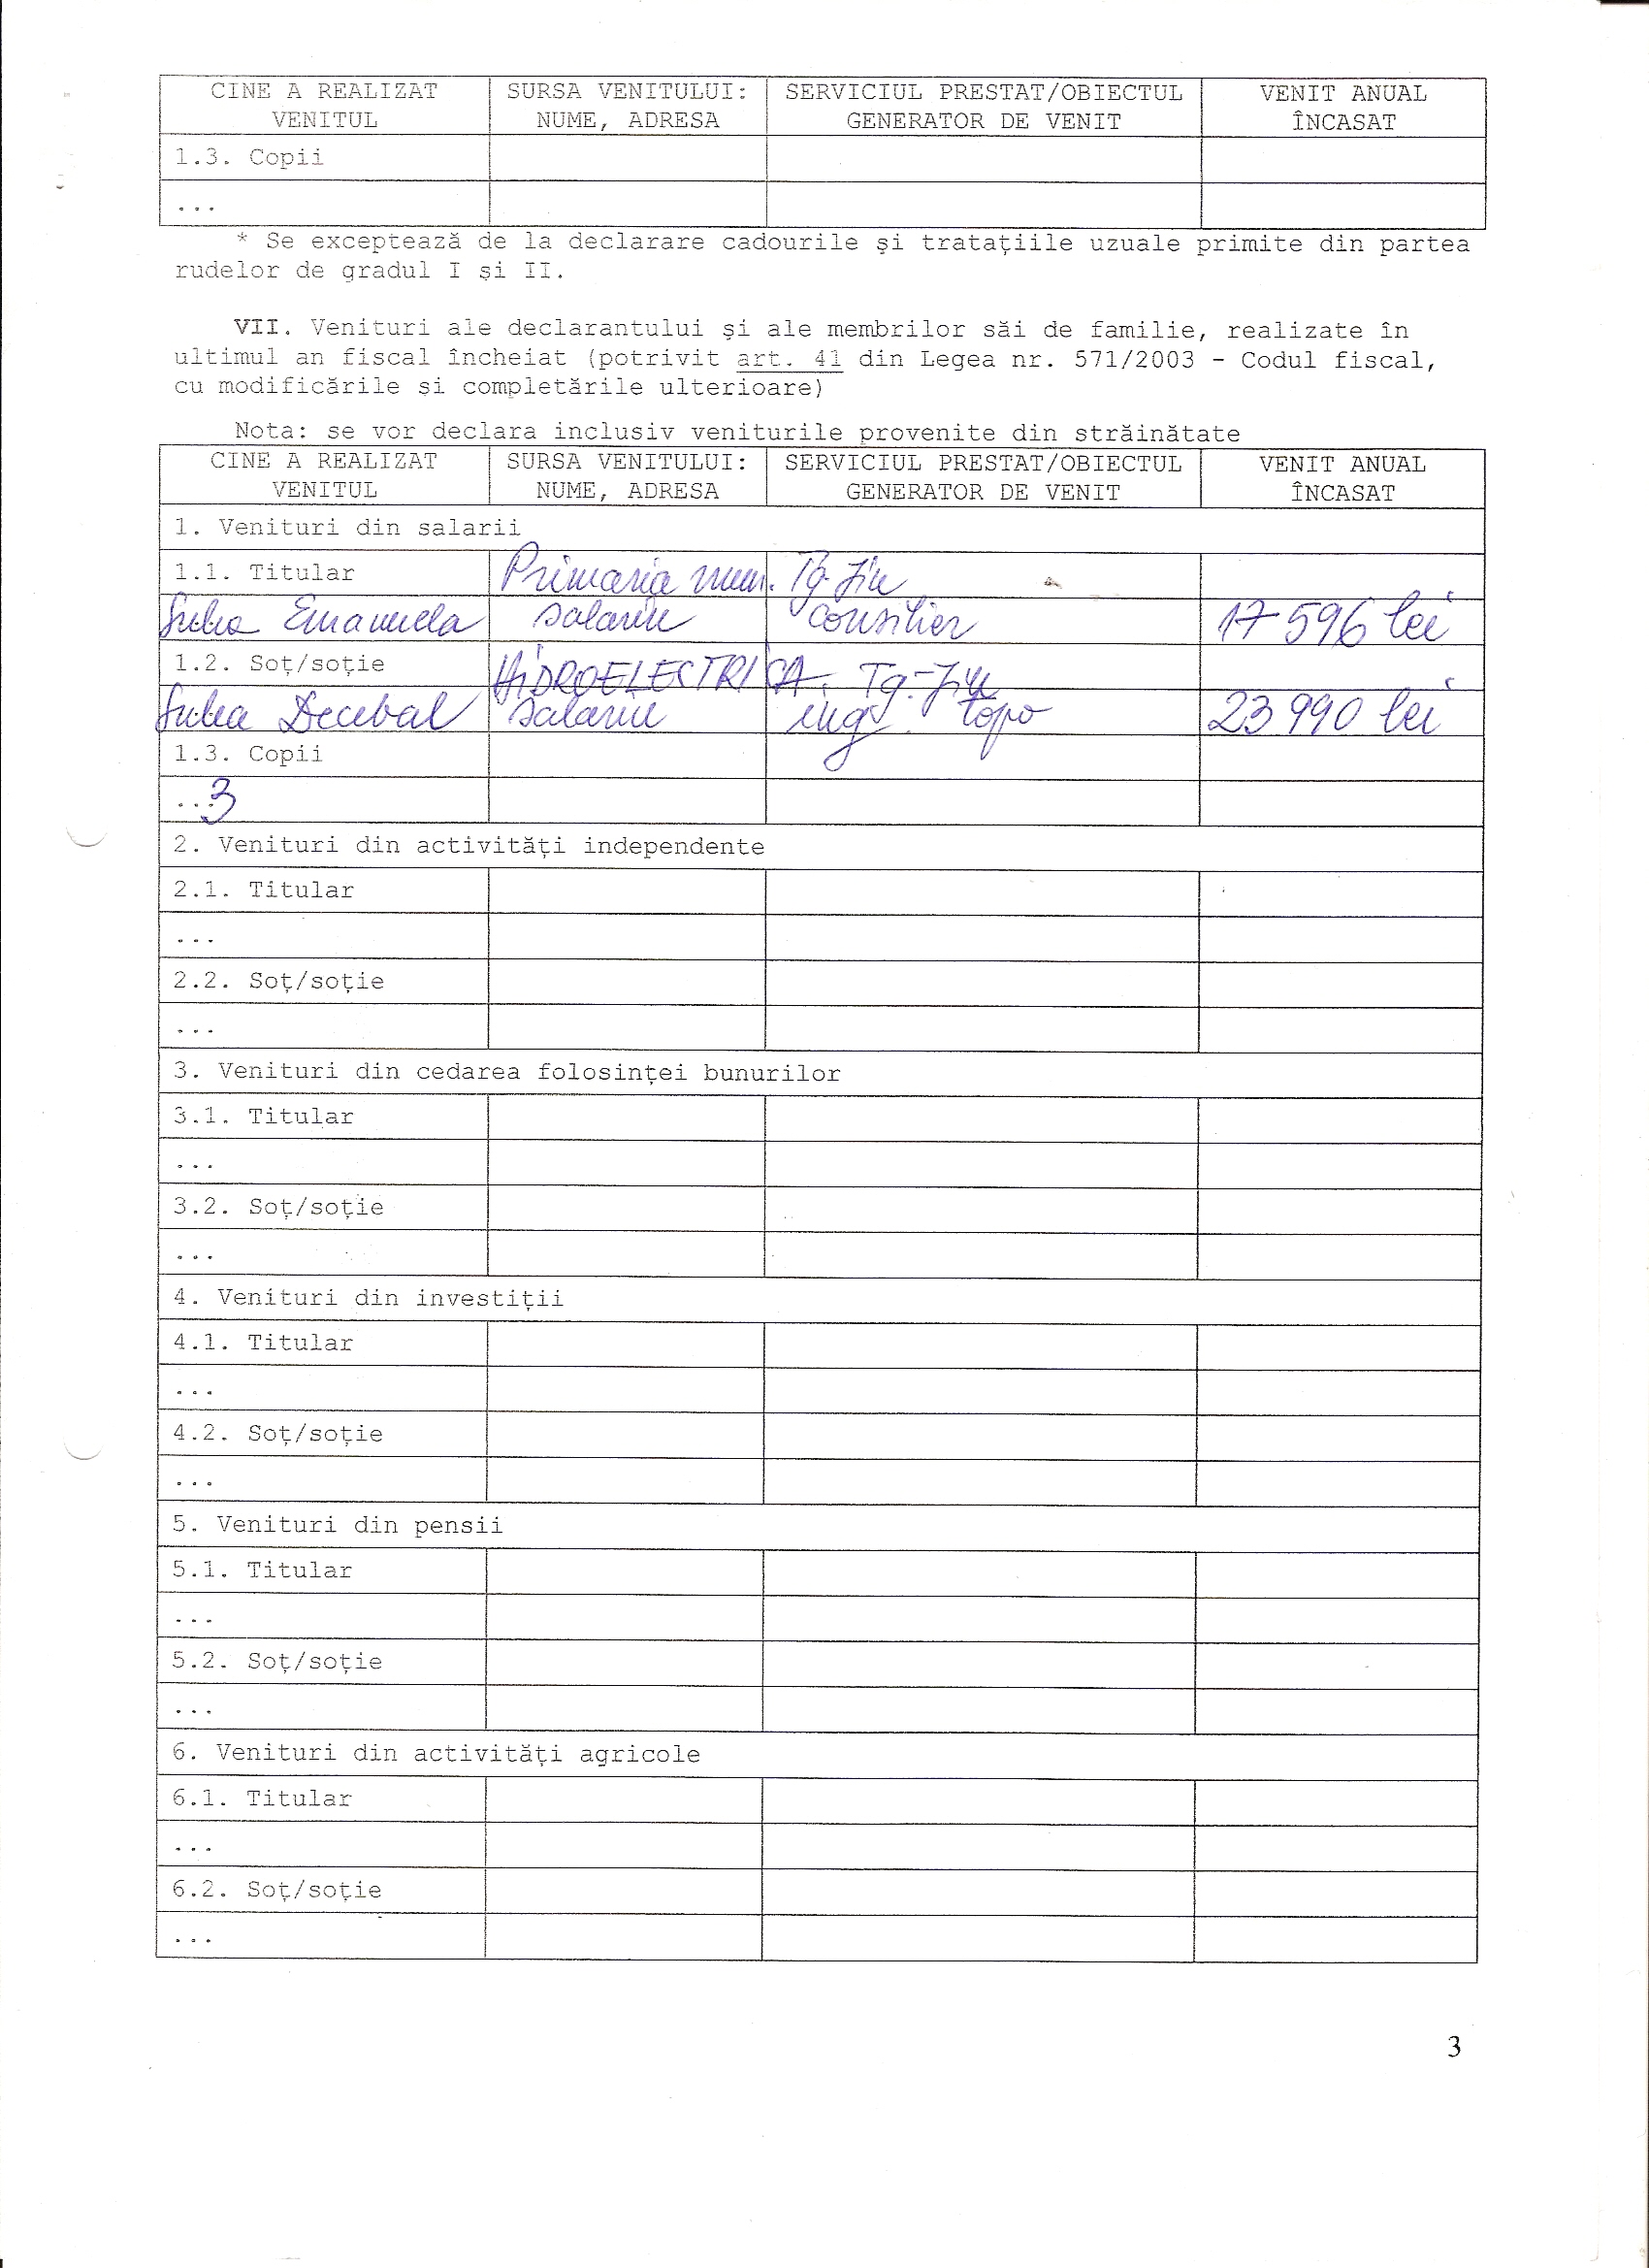 CINE A REALIZAT SURSA VENITULUI: SERVICIUL PRESTAT/OBIECTUL VENIT ANUAL
VENITUL NUME, ADRESA GENERATOR DE VENIT ÎNCASAT
1.3. Copii
...
* Se exceptează de la declarare cadourile şi trataţiile uzuale primite din partea
rudelor de gradul I şi II.
VII. Venituri ale declarantului şi ale membrilor săi de familie, realizate în
ultimul an fiscal încheiat (potrivit art. 41 din Legea nr. 571/2003 - Codul fiscal,
cu modificările si completările ulterioare)
Nota: se vor declara inclusiv veniturile provenite din străinătate
CINE A REALIZAT SURSA VENITULUI: SERVICIUL PRESTAT/OBIECTUL VENIT ANUAL
VENITUL NUME, ADRESA GENERATOR DE VENIT ÎNCASAT
1. Venituri din salarii
1.1. Titular Primaria mun. Tg-Jiu
Emanuela salariu consilier 17 596 lei
1.2. Soţ/soţie HiDROELECTRICA. Tg.-Jiu
Decebal salariu ing. topo 23 990 lei
1.3. Copii
...3
2. Venituri din activităţi independente
2.1. Titular
...
2.2. Soţ/soţie
...
3. Venituri din cedarea folosinţei bunurilor
3.1. Titular
...
3.2. Soţ/soţie
...
4. Venituri din investiţii
4.1. Titular
...
4.2. Soţ/soţie
...
5. Venituri din pensii
5.1. Titular
...
5.2. Soţ/soţie
...
6. Venituri din activităţi agricole
6.1. Titular
...
6.2. Soţ/soţie
...
3